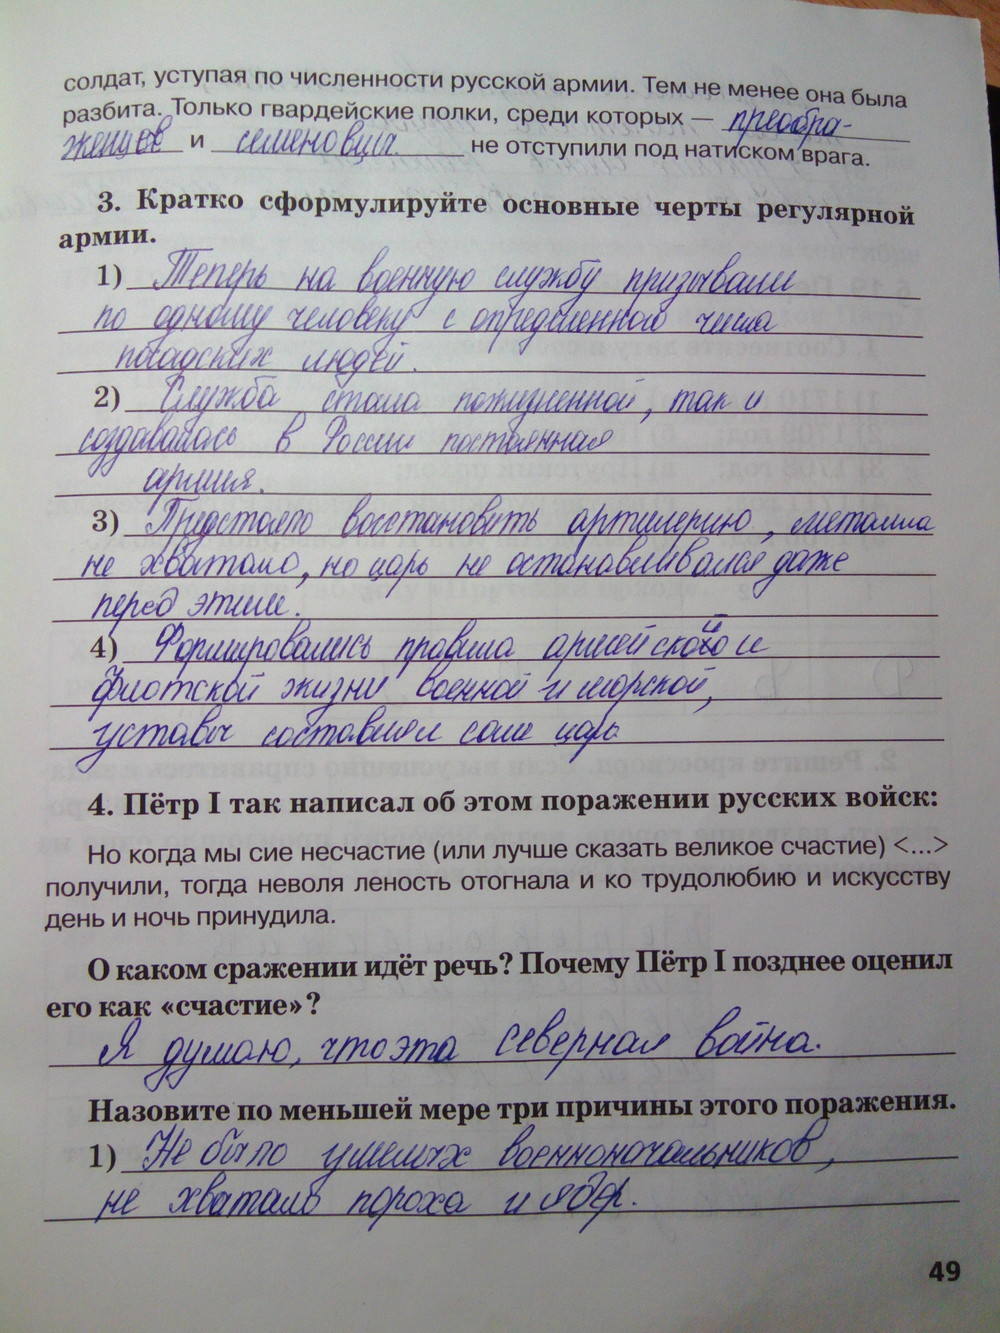 солдат, уступая по численности русской армии. Тем не менее она была
разбита. Только гвардейские полки, среди которых — преобра-
женцев и семеновцы не отступили под натиском врага.
3. Кратко сформулируйте основные черты регулярной
армии.
1) Теперь на военную службу призывали
по одному человеку с определенного числа
посадских людей.
2) Служба стала пожизненной, так и
создавалась в России постоянная
армия.
3) Предстояло восстановить артилерию, металла
не хватало, но царь не останавливался даже
перед этим.
4) Формировались правила армейской и
флотской жизни военной и морской,
уставы составлял сам царь
4. Пётр I так написал об этом поражении русских войск:
Но когда мы сие несчастие (или лучше сказать великое счастие) <...>
получили, тогда неволя леность отогнала и ко трудолюбию и искусству
день и ночь принудила.
О каком сражении идёт речь? Почему Пётр I позднее оценил
его как «счастие»?
Я думаю, что эта Северная война.
Назовите по меньшей мере три причины этого поражения.
1) Не было умелых военноночальников,
не хватало пороха и ядер.
49